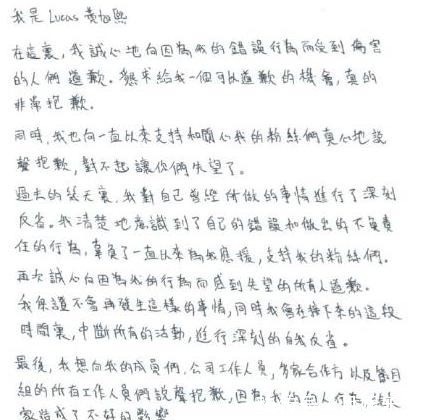 我是 Lucas 黃旭熙
在這裏, 我誠心地向因為我的錯誤行為而受到傷害
的人們道歉. 懇求給我一個可以道歉的機會, 真的
非常抱歉.
同時, 我也向一直以來支持和關心我的粉絲們真心地說
聲抱歉, 對不起讓你們失望了.
過去的幾天裏, 我對自己曾經所做的事情進行了深刻
反省. 我清楚地意識到了自己的錯誤和做出的不負責
任的行為, 辜負了一直以來為我應援, 支持我的粉絲們.
再次誠心向因為我的行為而感到失望的所有人道歉.
我保證不會再發生這樣的事情, 同時我會在接下來的這段
時間裏, 中斷所有的活動, 進行深刻的自我反省.
最後, 我想向我的成員們, 公司工作人員, 多家合作方以及節目
組的所有工作人員們說聲抱歉, 因為我的個人行為, 給大
家造成了不好的影響